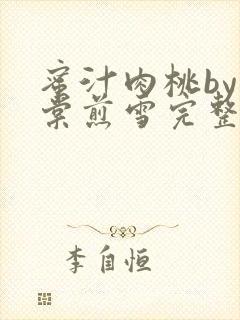 蜜汁肉桃by
棠煎雪完整
李自恒